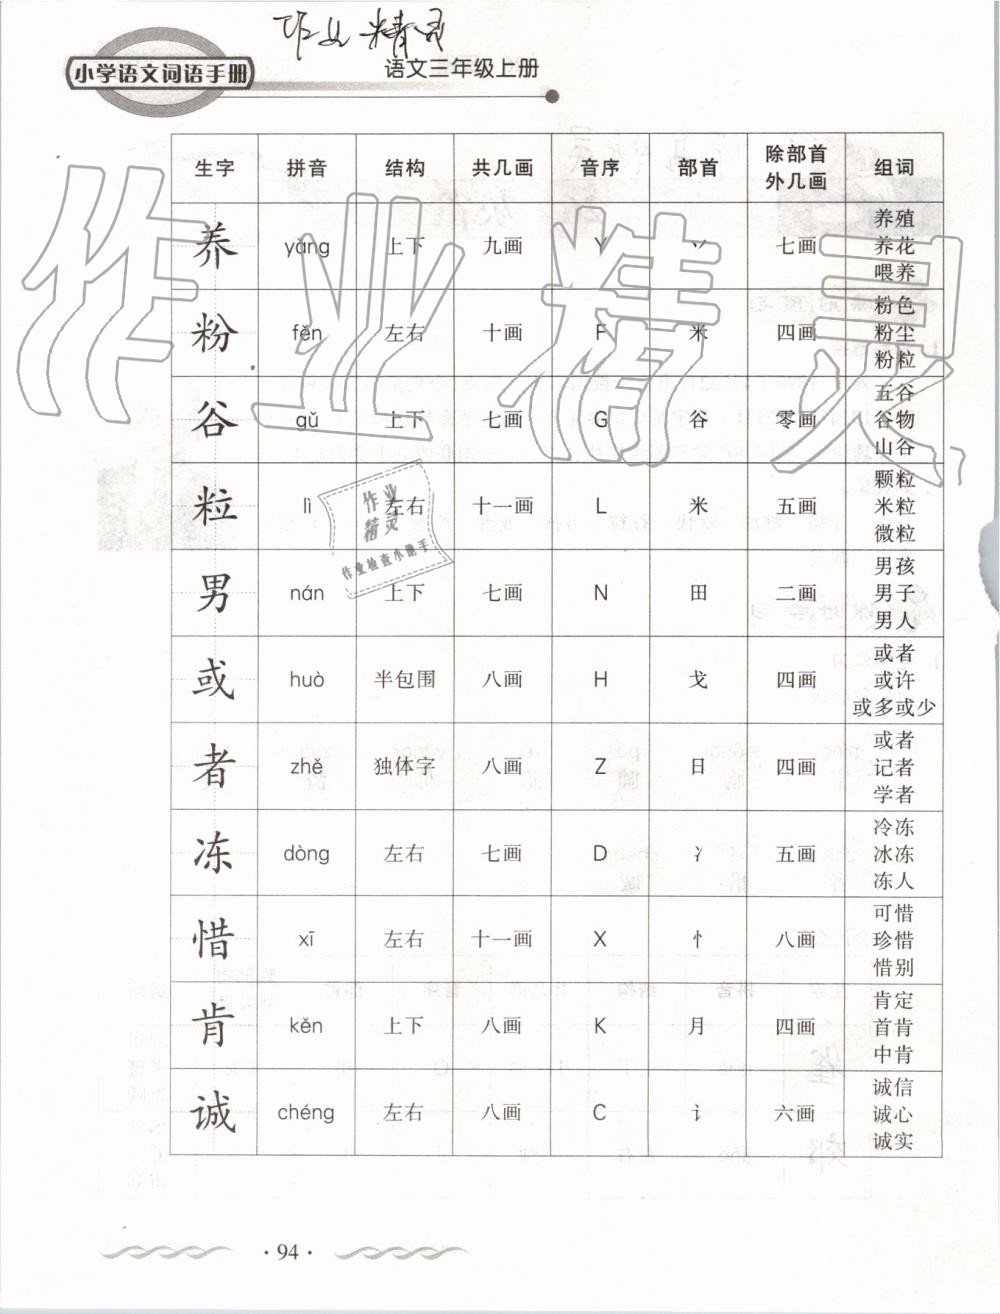 作业精灵
小学语文词语手册
语文三年级上册
生字 拼音 结构 共几画 音序 部首 除部首外几画 组词
养 yǎng 上下 九画 Y 丷 七画 养殖 养花 喂养
粉 fěn 左右 十画 F 米 四画 粉色 粉尘 粉粒
谷 gǔ 上下 七画 G 谷 零画 五谷 谷物 山谷
粒 lì 左右 十一画 L 米 五画 颗粒 米粒 微粒
男 nán 上下 七画 N 田 二画 男孩 男子 男人
或 huò 半包围 八画 H 戈 四画 或者 或许 或多或少
者 zhě 独体字 八画 Z 日 四画 或者 记者 学者
冻 dòng 左右 七画 D 冫 五画 冷冻 冰冻 冻人
惜 xī 左右 十一画 X 忄 八画 可惜 珍惜 惜别
肯 kěn 上下 八画 K 月 四画 肯定 首肯 中肯
诚 chéng 左右 八画 C 讠 六画 诚信 诚心 诚实
作业精灵
作业
精灵
作业检查小助手
·94·